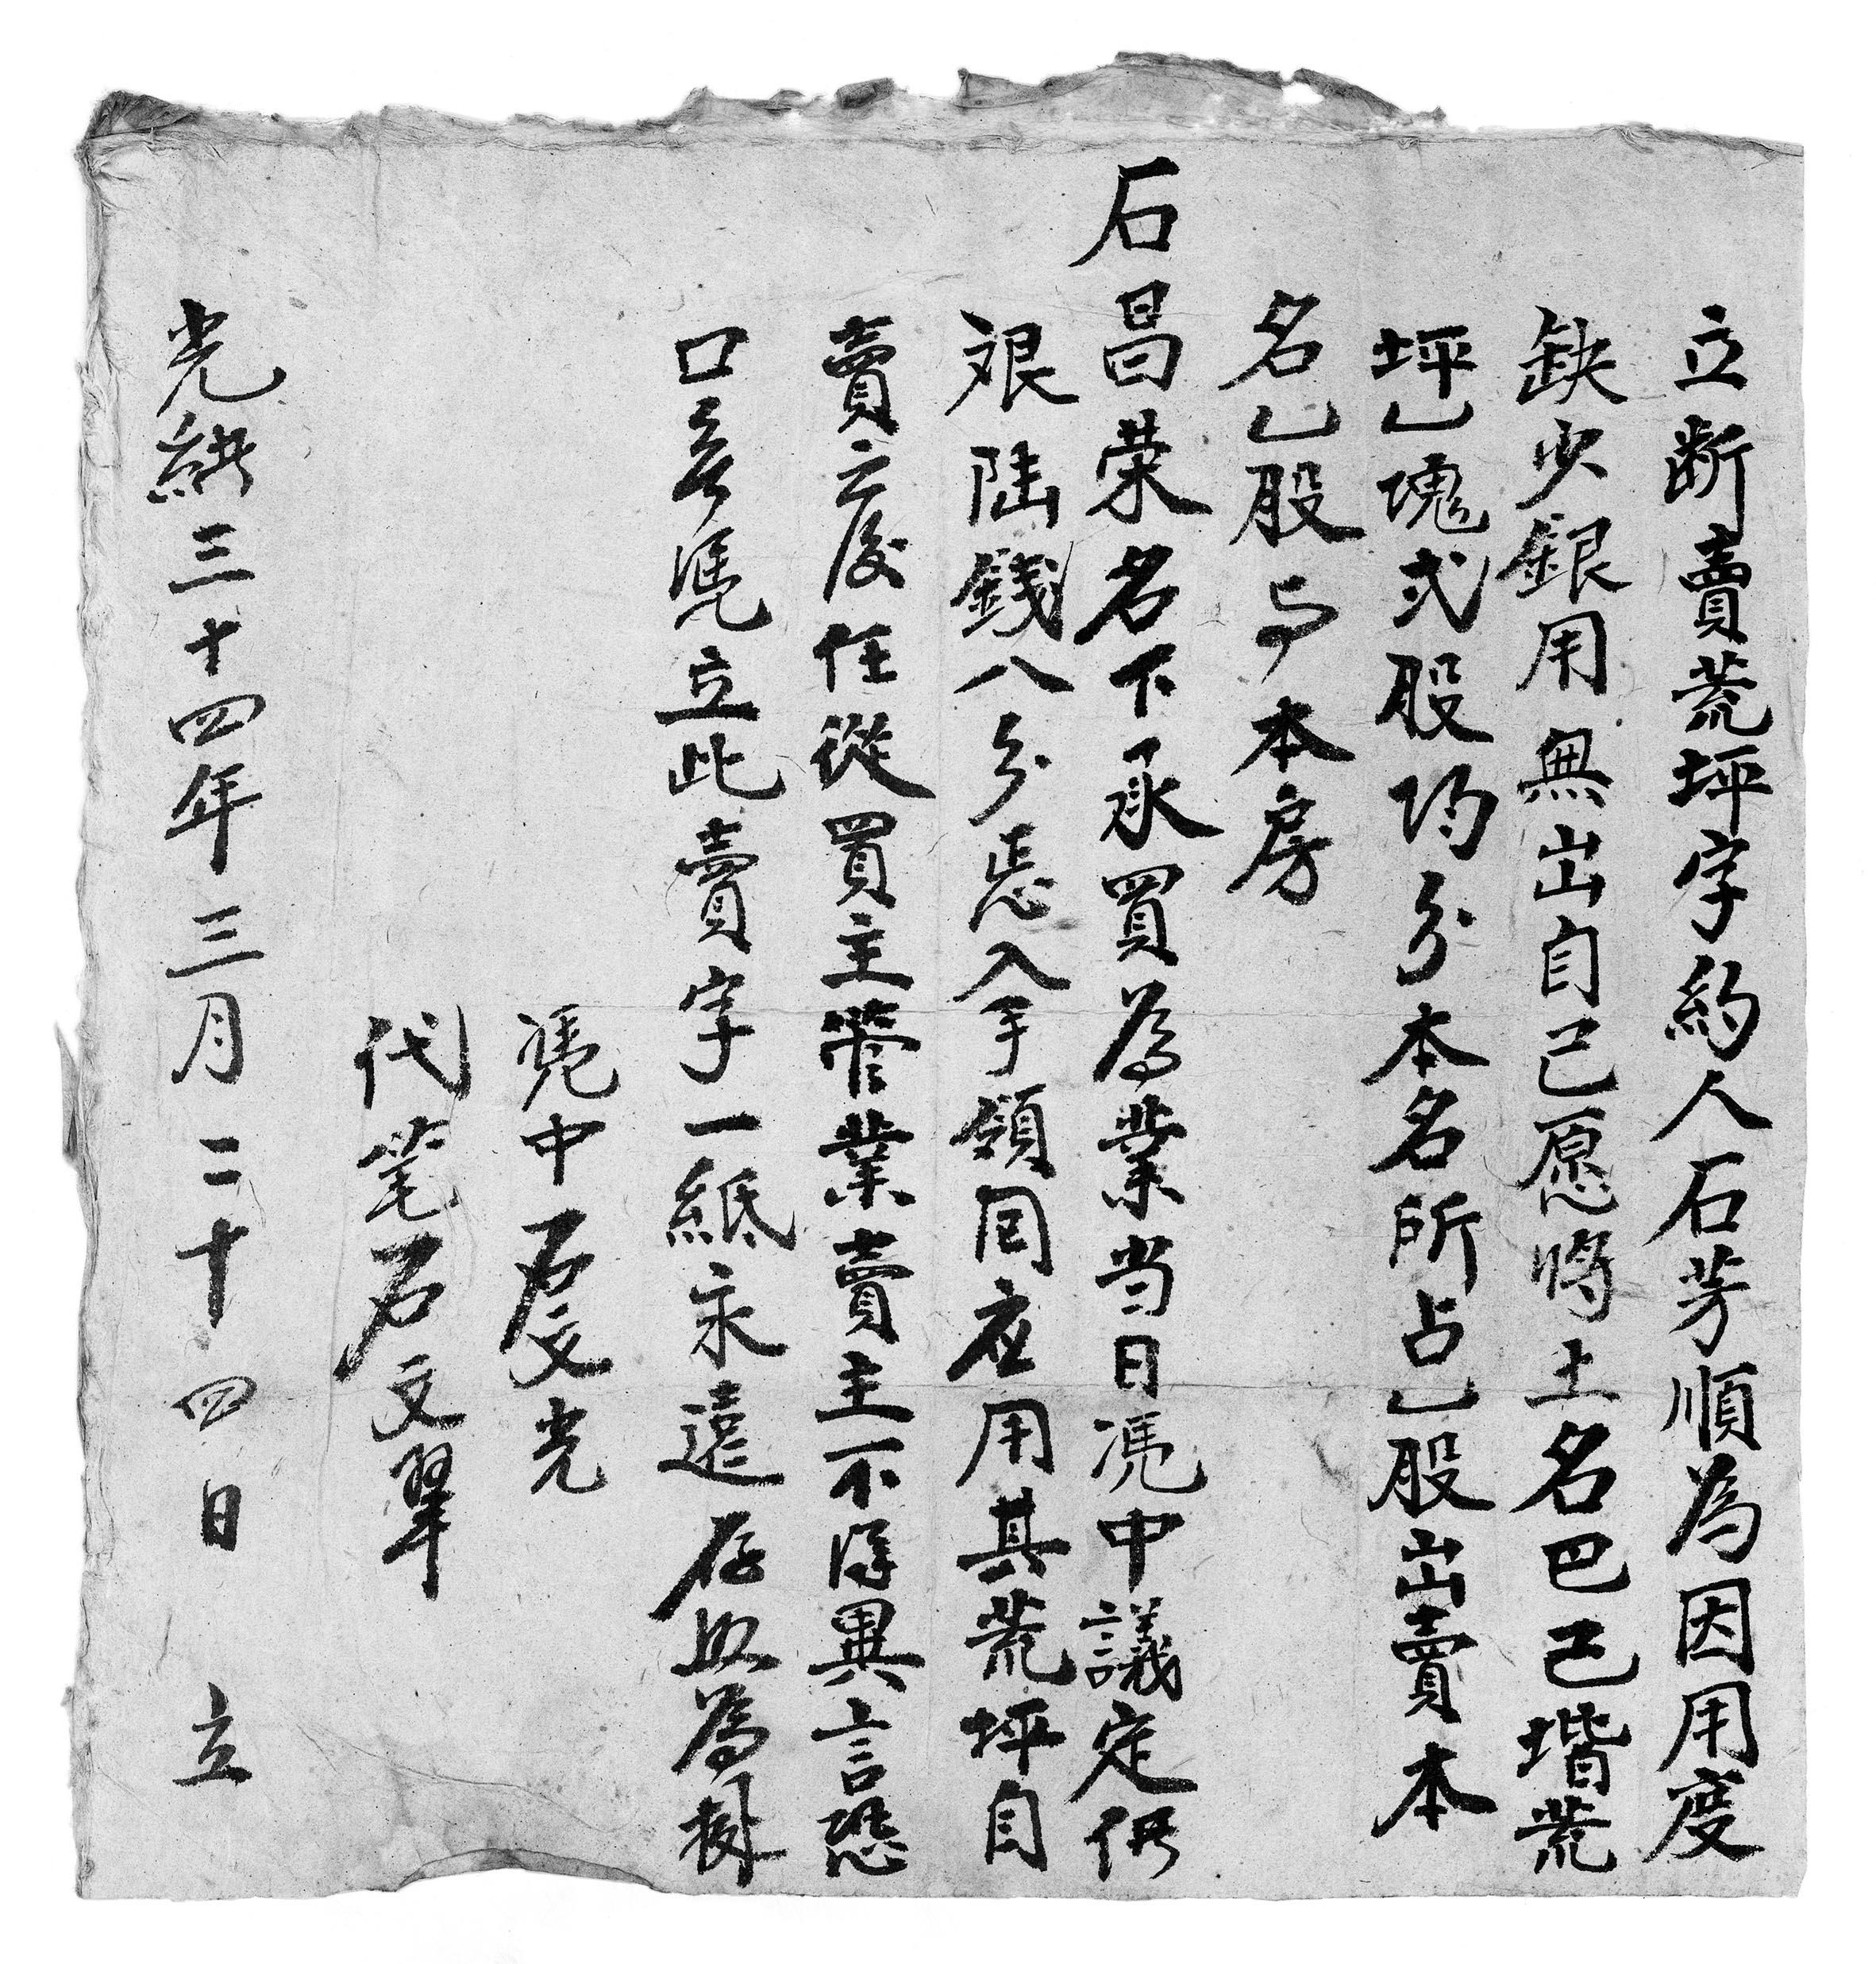 立断賣荒坪字約人石芳順為因用度
缺少銀用無出自己愿將土名巴己塔荒
坪乙塊弍股均分本名所占乙股出賣本
名乙股与本房
石昌荣名下承買為業当日凴中議定價
艮陆錢八分悉入手領回应用其荒坪自
賣之後任從買主管業賣主不得異言恐
口無凴立此賣字一紙永遠存照為據
凴中石文光
代笔石文翠
光緒三十四年三月二十四日 立